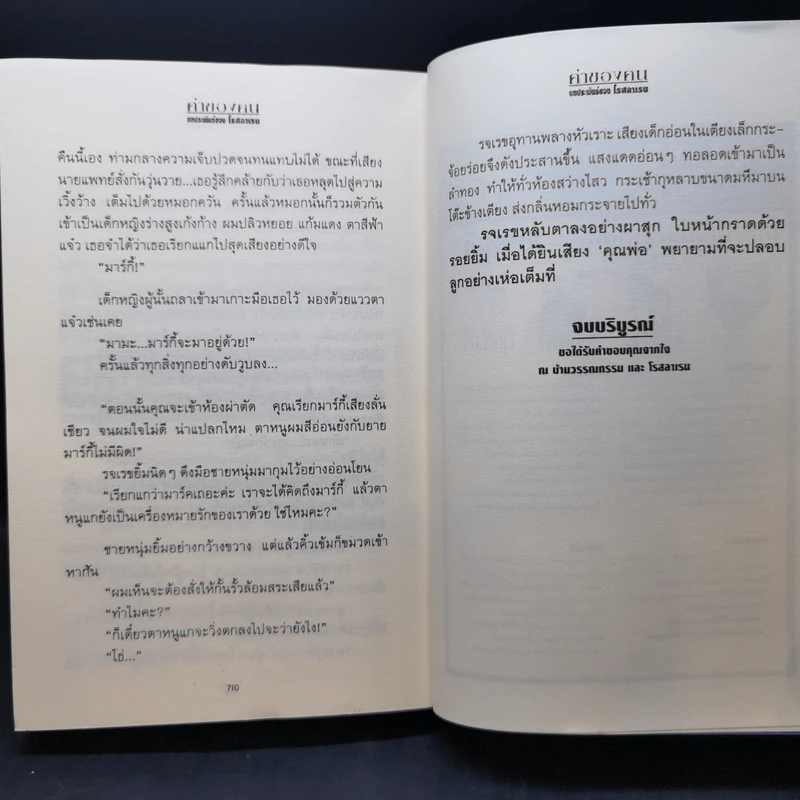 ค่าของคน
บทประพันธ์ของ โรสลาเรน
คืนนี้เอง ท่ามกลางความเจ็บปวดจนทนแทบไม่ได้ ขณะที่เสียง
นายแพทย์สั่งกันวุ่นวาย...เธอรู้สึกคล้ายกับว่าเธอหลุดไปสู่ความ
เวิ้งว้าง เต็มไปด้วยหมอกควัน ครั้นแล้วหมอกนั้นก็รวมตัวกัน
เข้าเป็นเด็กหญิงร่างสูงเก้งก้าง ผมปลิวหยอย แก้มแดง ตาสีฟ้า
แจ๋ว เธอจำได้ว่าเธอเรียกแแกไปสุดเสียงอย่างดีใจ
“มาร์กี้!”
เด็กหญิงผู้นั้นถลาเข้ามาเกาะมือเธอไว้ มองด้วยแววตา
แจ๋วเช่นเคย
“มามะ...มาร์กี้จะมาอยู่ด้วย!”
ครั้นแล้วทุกสิ่งทุกอย่างดับวูบลง...
“ตอนนั้นคุณจะเข้าห้องผ่าตัด คุณเรียกมาร์กี้เสียงลั่น
เชียว จนผมใจไม่ดี น่าแปลกไหม ตาหนูผมสีอ่อนยังกับยาย
มาร์กี้ไม่มีผิด!”
รจเรขยิ้มนิดๆ ดึงมือชายหนุ่มมากุมไว้อย่างอ่อนโยน
“เรียกแกว่ามาร์คเถอะค่ะ เราจะได้คิดถึงมาร์กี้ แล้วตา
หนูแกยังเป็นเครื่องหมายรักของเราด้วย ใช่ไหมคะ?”
ชายหนุ่มยิ้มอย่างกว้างขวาง แต่แล้วคิ้วเข้มก็ขมวดเข้า
หากัน
“ผมเห็นจะต้องสั่งให้กั้นรั้วล้อมสระเสียแล้ว”
“ทำไมคะ?”
“ก็เดี๋ยวตาหนูแกจะวิ่งตกลงไปจะว่ายังไง!”
“โธ่...”
710
ค่าของคน
บทประพันธ์ของ โรสลาเรน
รจเรขอุทานพลางหัวเราะ เสียงเด็กอ่อนในเตียงเล็กกระ-
จ้อยร่อยจึงดังประสานขึ้น แสงแดดอ่อนๆ ทอลอดเข้ามาเป็น
ลำทอง ทำให้ทั่วห้องสว่างไสว กระเช้ากุหลาบขนาดมหึมาบน
โต๊ะข้างเตียง ส่งกลิ่นหอมกระจายไปทั่ว
รจเรขหลับตาลงอย่างผาสุก ใบหน้ากราดด้วย
รอยยิ้ม เมื่อได้ยินเสียง ‘คุณพ่อ’ พยายามที่จะปลอบ
ลูกอย่างเห่อเต็มที่
จบบริบูรณ์
ขอได้รับคำขอบคุณจากใจ
ณ บ้านวรรณกรรม และ โรสลาเรน